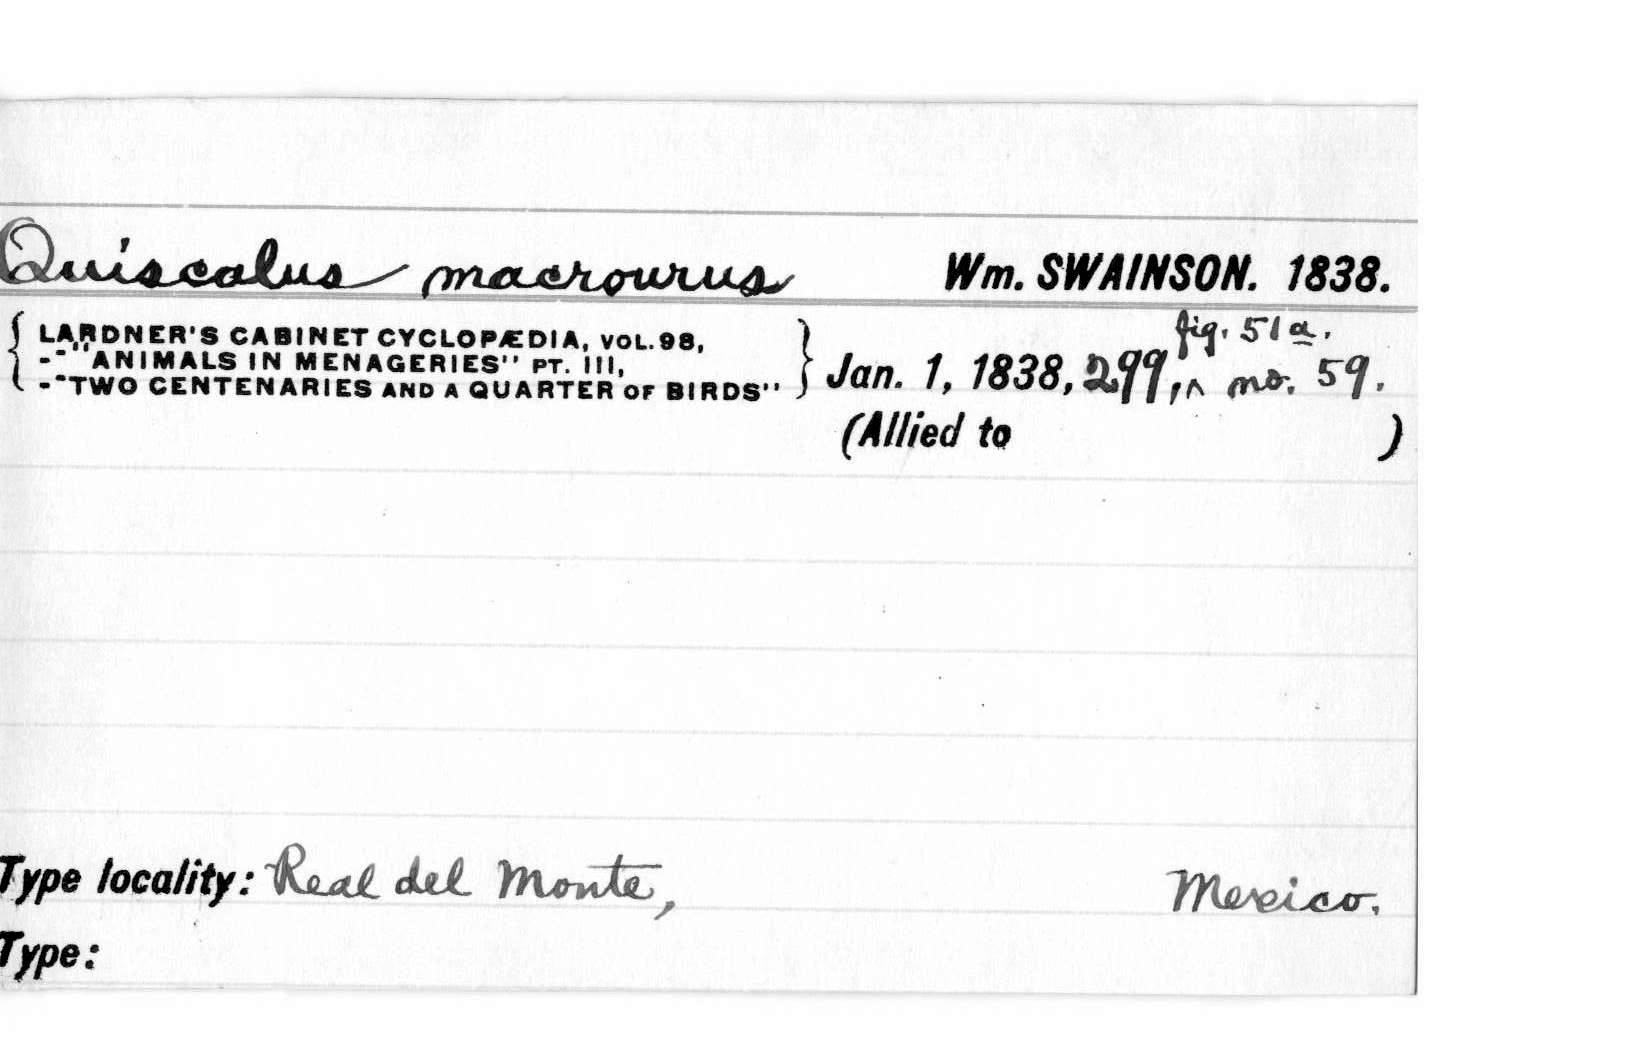 Quiscalus macrourus Wm. SWAINSON. 1838.
{ LARDNER'S CABINET CYCLOPÆDIA, VOL. 98, } fig. 51a.
-"-"ANIMALS IN MENAGERIES" PT. III, Jan. 1, 1838, 299,^ no. 59.
-"-"TWO CENTENARIES AND A QUARTER OF BIRDS"
(Allied to )
Type locality: Real del Monte, Mexico.
Type: